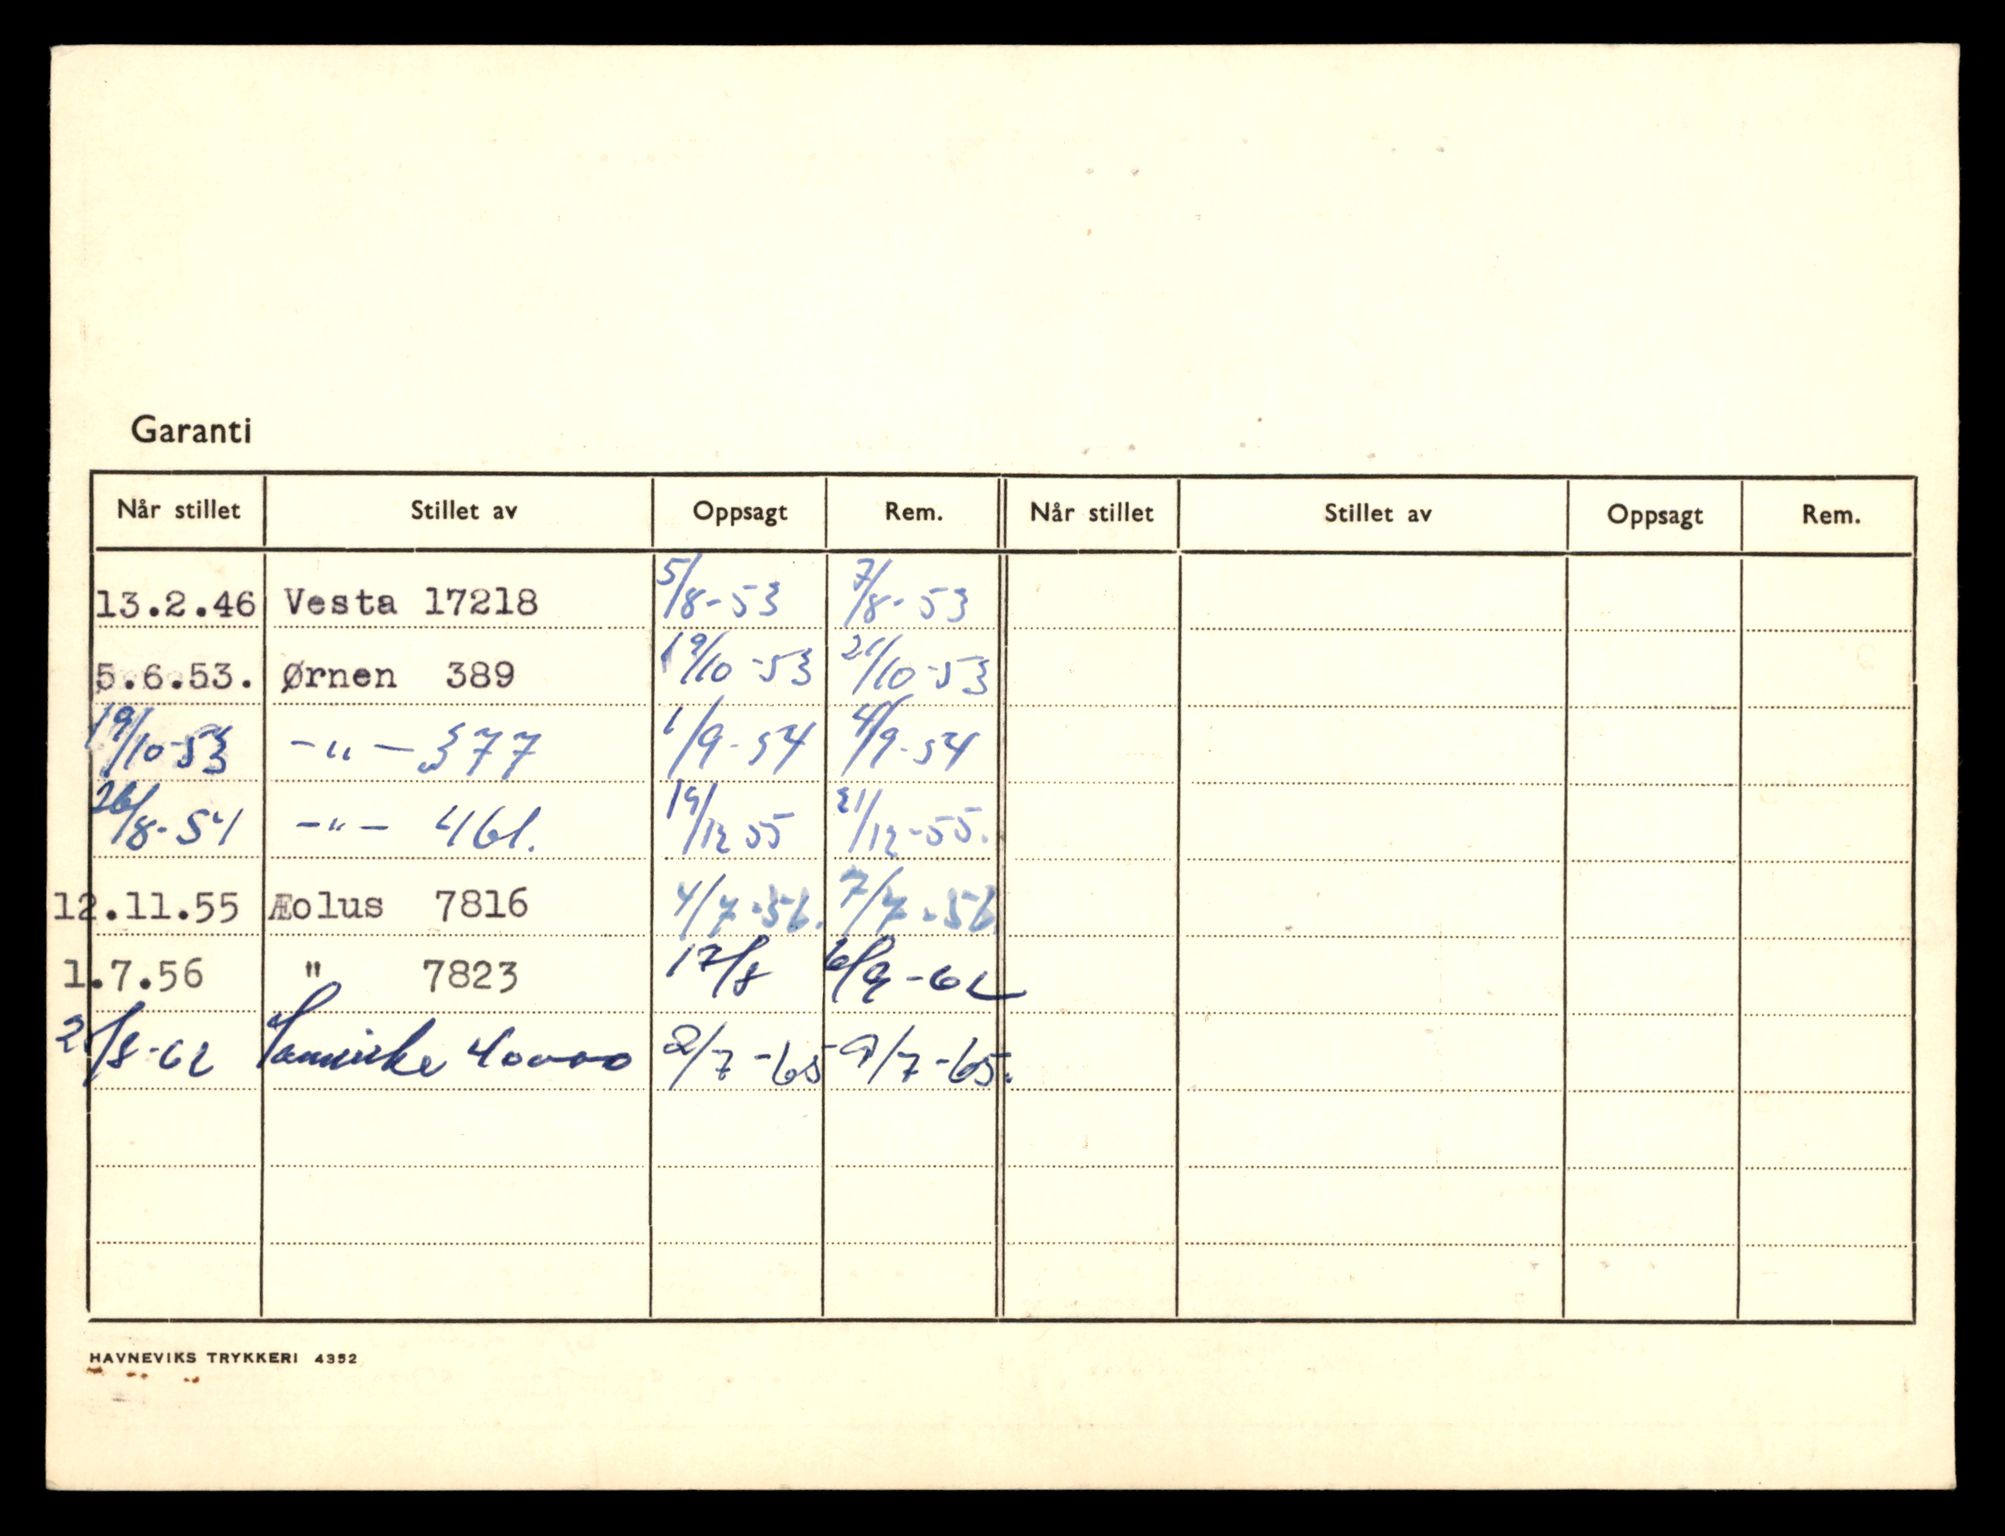 Garanti
Når stillet Stillet av Oppsagt Rem. Når stillet Stillet av Oppsagt Rem.
13.2.46 Vesta 17218 5/8-53 7/8-53
5.6.53. Ørnen 389 19/10-53 21/10-53
19/10-53 -"- 377 1/9-54 4/9-54
26/8-54 -"- 461. 19/12 55 21/12-55.
12.11.55 Æolus 7816 4/7-56. 7/7-56.
1.7.56 " 7823 17/8 6/9-62
2/8-62 40000 2/7-65 9/7-65.
HAVNEVIKS TRYKKERI 4352